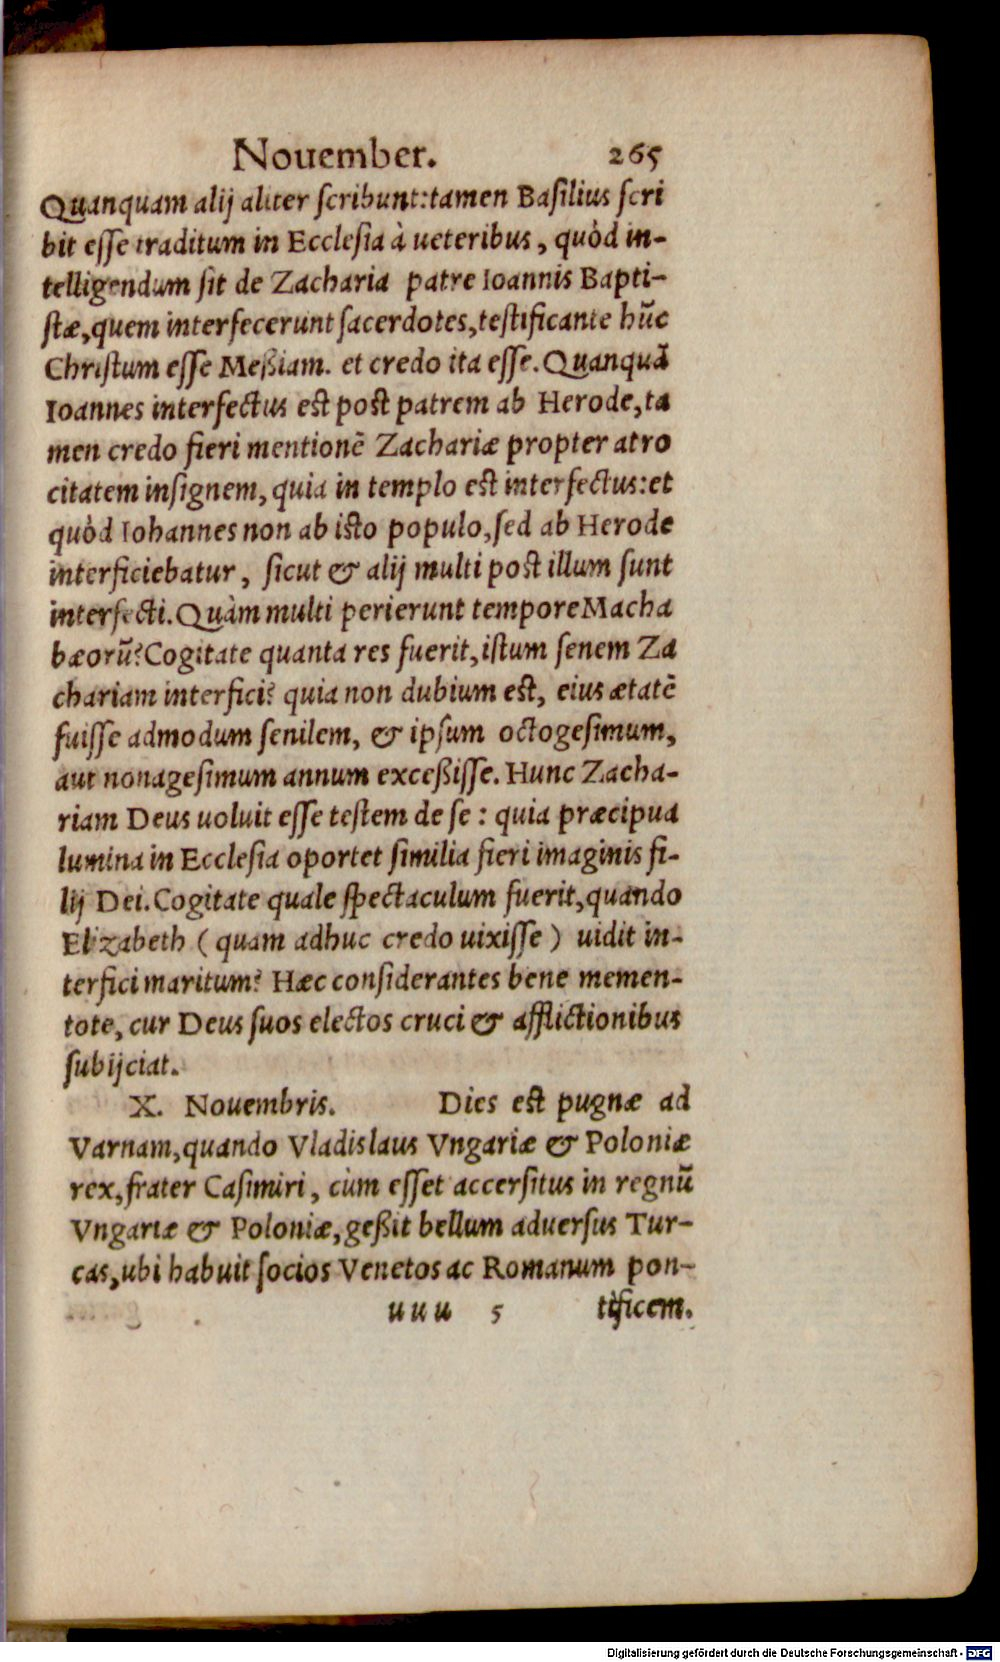 Nouember. 265
Quanquam alij aliter ſcribunt:tamen Baſilius ſcri
bit eſſe traditum in Eccleſia à ueteribus, quòd in-
telligendum ſit de Zacharia patre Ioannis Bapti-
ſtæ,quem interfecerunt ſacerdotes,teſtificante hūc
Chriſtum eſſe Meßiam. et credo ita eſſe. Quanquā
Ioannes interfectus eſt poſt patrem ab Herode,ta
men credo fieri mentionē Zachariæ propter atro
citatem inſignem, quia in templo eſt interfectus:et
quòd Iohannes non ab iſto populo,ſed ab Herode
interficiebatur, ſicut & alij multi poſt illum ſunt
interfecti. Quàm multi perierunt tempore Macha
bæorū? Cogitate quanta res fuerit,iſtum ſenem Za
chariam interfici? quia non dubium eſt, eius ætatē
fuiſſe admodum ſenilem, & ipſum octogeſimum,
aut nonageſimum annum exceßiſſe. Hunc Zacha-
riam Deus uoluit eſſe teſtem de ſe : quia præcipua
lumina in Eccleſia oportet ſimilia fieri imaginis fi-
lij Dei. Cogitate quale ſpectaculum fuerit,quando
Elizabeth ( quam adhuc credo uixiſſe ) uidit in-
terfici maritum? Hæc conſiderantes bene memen-
tote, cur Deus ſuos electos cruci & afflictionibus
ſubijciat.
X. Nouembris. Dies eſt pugnæ ad
Varnam,quando Vladislaus Vngariæ & Poloniæ
rex,frater Caſimiri, cùm eſſet accerſitus in regnū
Vngariæ & Poloniæ,geßit bellum aduerſus Tur-
cas,ubi habuit ſocios Venetos ac Romanum pon-
uuu 5 tificem.
Digitalisierung gefördert durch die Deutsche Forschungsgemeinschaft - DFG